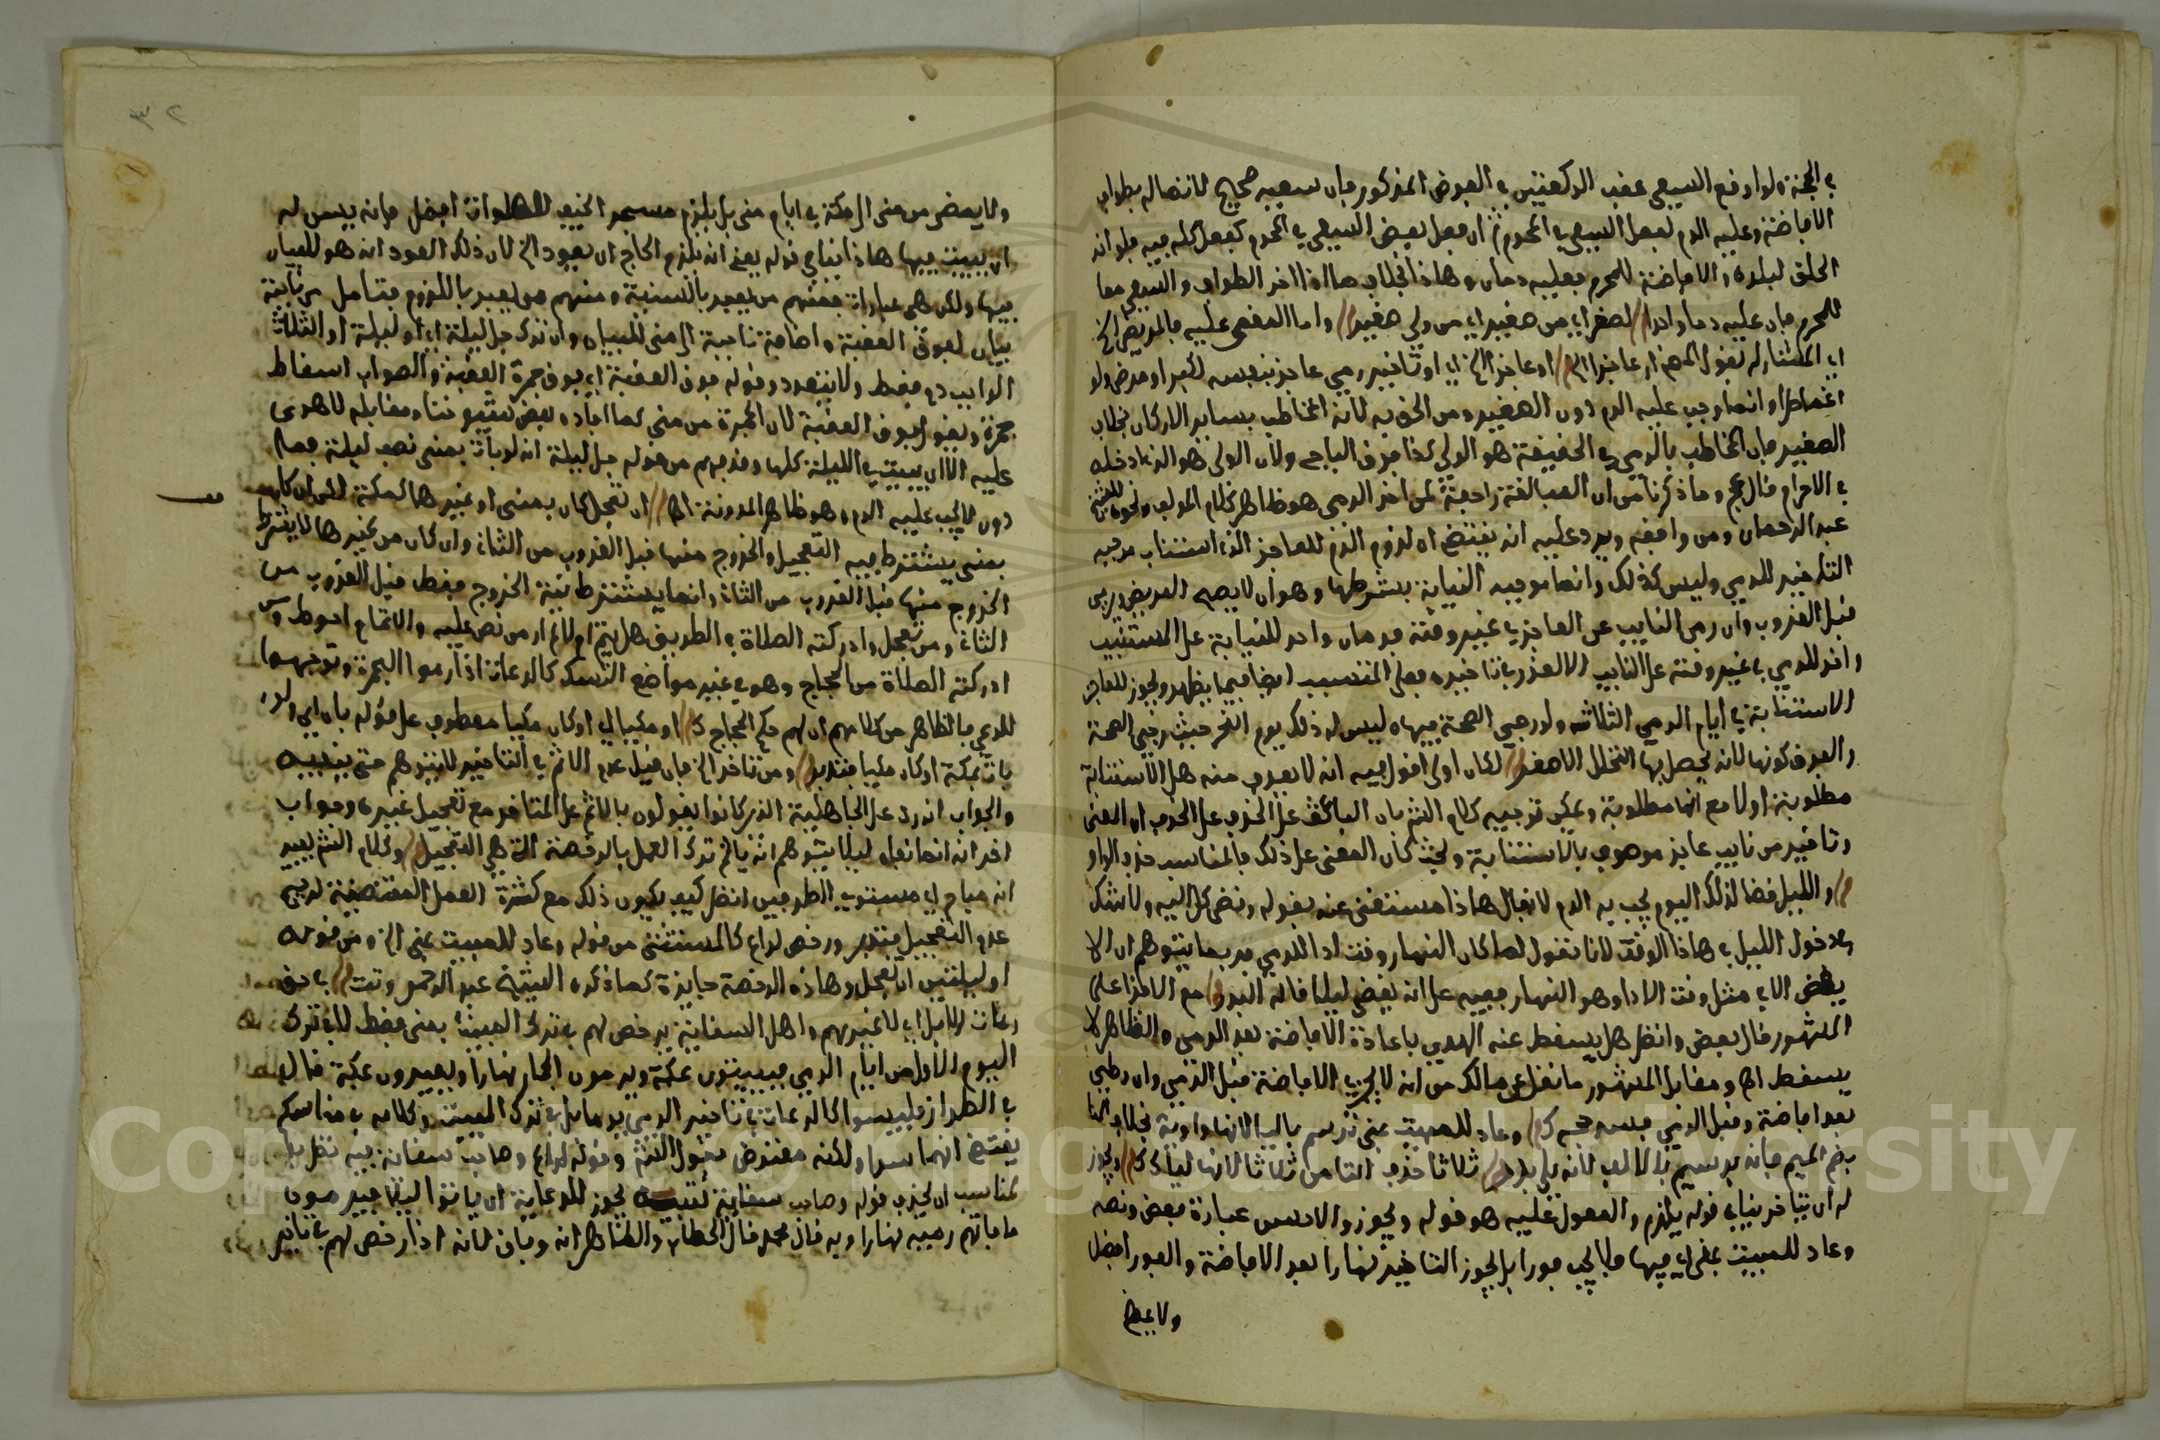 في الحجة ولو اوقع السعي عقب الركعتين في الفرض المذكور فان سعيه صحيح لاتصاله بطواف
الافاضة وعليه الدم لفعل السعي في المحرم ان فعل بعض السعي في المحرم كفعل كله فيه فلو اخر
الحلق لبلده والافاضة للمحرم فعليه دمان وهاذا بخلاف ما اذا اخر الطواف والسعي معا
للمحرم فان عليه دما واحدا لصغر اي من صغير اي من ولي صغير واما المغمى عليه فالمريض الخ
او عاجز الخ اي او تاخير رمي عاجز بنفسه لكبر او مرض ولو
اغماء طرا وانما وجب عليه الدم دون الصغير ومن الحق به لانه المخاطب بساير الاركان بخلاف
الصغير فان المخاطب بالرمي في الحقيقة هو الولي كذا فرق الباجي ولان الولي هو الذي ادخله
في الاحرام قال عج وما ذكرنا من ان المبالغة راجعة لمن اخر الرمي هو ظاهر كلام المولف ونحوه للشيخ
عبد الرحمان ومن وافقه ويرد عليه انه يقتضي ان لزوم الدم للعاجز الذي استناب موجبه
التاخير للرمي وليس كذلك وانما موجبه النيابة بشرطها وهو ان لا يصح المريض ويرمي
قبل الغروب وان رمى النايب عن العاجز في غير وقته فدمان واحد للنيابة على المستنيب
واخر للرمي في غير وقته على النايب الا لعذر بتاخيره فعلى المتسبب ايضا فيما يظهر ويجوز للعاجز
الاستنابة في ايام الرمي الثلاثة ولو رجى الصحة فيها وليس له ذلك يوم النحر حيث رجى الصحة
والفرق كونها لانه يحصل بها التحلل الاصغر لكان اولى اقول فيه انه لا يعرف منه هل الاستنابة
مطلوبة اولا مع انها مطلوبة ويمكن توجيه كلام الشرح بان الباعث على الحذف ان المعنى
وتاخير من نايب عاجز موصوف بالاستنابة وحيث كان المعنى على ذلك فالمناسب حذف الواو
والليل قضا لذلك اليوم يجب به الدم لا يقال هاذا مستغنى عنه بقوله وقضى كل اليه ولا شك
بدخول الليل في هاذا الوقت لانا نقول لما كان النهار وقت اداء للرمي فربما يتوهم ان لا
يقضى الا في مثل وقت الاداء وهو النهار فنبه على انه يقضى ليلا قاله البدر مع الاجزا على
المشهور قال بعض وانظر هل يسقط عنه الهدي باعادة الافاضة بعد الرمي والظاهر لا
يسقط اهـ ومقابل المشهور ما نقل عن مالك من انه لا يجزي الافاضة قبل الرمي وان وطي
بعد افاضة وقبل الرمي وعاد للمبيت بمنى ترسم بالياء لانها واوية بخلاف
بضم الميم فانه يرسم بالالف ثلاثا حذف التا من ثلاثا لانها ليال ويجوز
له ان يتاخر ينافي قوله يلزم والمعول عليه هو قوله ويجوز والاحسن عبارة بعض ونصه
وعاد للمبيت بمنى اي فيها ولا يجب فورا بل يجوز التاخير نهارا بعد الافاضة والفور افضل
ولا يمضي
٣٢
ولا يمضي من منى الى مكة في ايام منى بل يلزم مسجد الخيف للصلوات افضل فانه ليس له
ان يبيت فيها هاذا ينافي قوله يعني انه يلزم الحاج ان يعود الخ لان ذلك العود انه هو للبيات
فيها ولكن هي عبارات فمنهم من يعبر بالسنية ومنهم من يعبر باللزوم فتامل
بيان لفوق العقبة واضافة ناحية الى منى للبيان وان ترك جل ليلة اي او ليلة او الثلاث
الواجب دم فقط ولا يتعدد وقوله فوق العقبة اي فوق جمرة العقبة والصواب اسقاط
جمرة ويقول فوق العقبة لان الجمرة من منى كما افاده بعض شيوخنا ومقابله لا هدي
عليه الا ان يبيت الليلة كلها وفهم من قوله جل ليلة انه لو بات بمنى نصف ليلة فما
دون لا يجب عليه الدم وهو ظاهر المدونة اهـ ان تعجل كان بمنى او غيرها كمكة لكن ان كان
بمنى يشترط فيه التعجيل والخروج منها قبل الغروب من الثاني وان كان من غيرها لا يشترط
الخروج منها قبل الغروب من الثاني وانما يشترط نية الخروج فقط قبل الغروب من
الثاني ومن تعجل وادركته الصلاة في الطريق هل يتم ام لا لم ار من نص عليه والاتمام احوط ومن
ادركته الصلاة من الحجاج وهو في غير مواضع النسك كالرعاة اذا رموا الجمرة وتوجهوا
للرعي فالظاهر من كلامهم ان لهم حكم الحجاج او مكيا اي او كان مكيا معطوف على قوله بات اي ولو
بات بمكة او كان مكيا فتدبر ومن تاخر الخ فان قيل عدم الاثم في التاخير لا يتوهم حتى ينفيه
والجواب انه رد على الجاهلية الذين كانوا يقولون بالاثم على المتاخر مع تعجيل غيره وجواب
اخر انه انما نفاه ليلا يتوهم انه ياثم ترك العمل بالرخصة التي هي التعجيل وكلام الشرح يفيد
انه مباح اي مستوي الطرفين انظر كيف يكون ذلك مع كثرة العمل المقتضية لترجيح
عدم التعجيل فتدبر ورخص لراع كالمستثنى من قوله وعاد للمبيت بمنى الخ ومن قوله
او ليلتين ان تعجل وهاذه الرخصة جايزة كما ذكره الشيخ عبد الرحمن وتت في حق
رعاة الابل اي لا غيرهم واهل السقاية يرخص لهم في ترك المبيت بمنى فقط لا في ترك
اليوم الاول من ايام الرمي فيبيتون بمكة ويرمون الجمار نهارا ويعودون بمكة قاله
في الطراز فليسوا كالرعاة في تاخير الرمي يوما بل في ترك المبيت وكلامه في مناسكه
يقتضي انهما سواء ولكنه معترض فقول الشرح وقوله لراع وصاحب سقاية فيه نظر بل
المناسب ان يحذف قوله وصاحب سقاية يجوز للرعاة ان ياتوا ليلا فيرمون
ما فاتهم رميه نهارا وبه قال محمد قال الحطاب والظاهر انه وفاق لانه اذا رخص لهم في تاخير